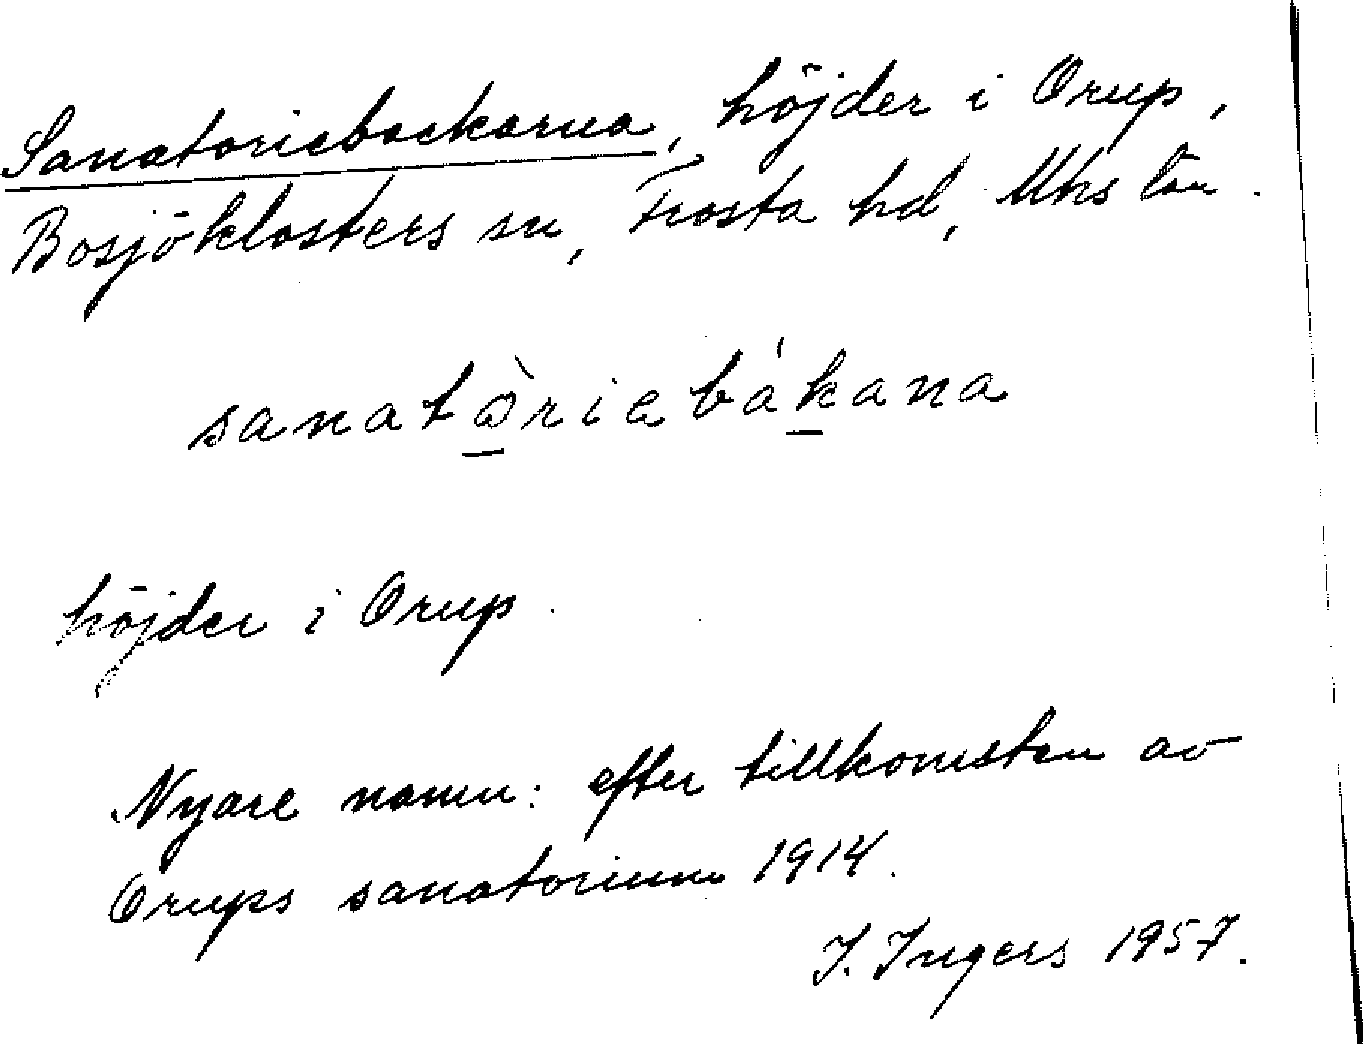 Sanatoriebackarna, höjder i Orup,
Bosjöklosters sn, Frosta hd, Mhs län.
sanatòriebákana
höjder i Orup.
Nyare namn: efter tillkomsten av
Orups sanatorium 1914.
I. Ingers 1957.